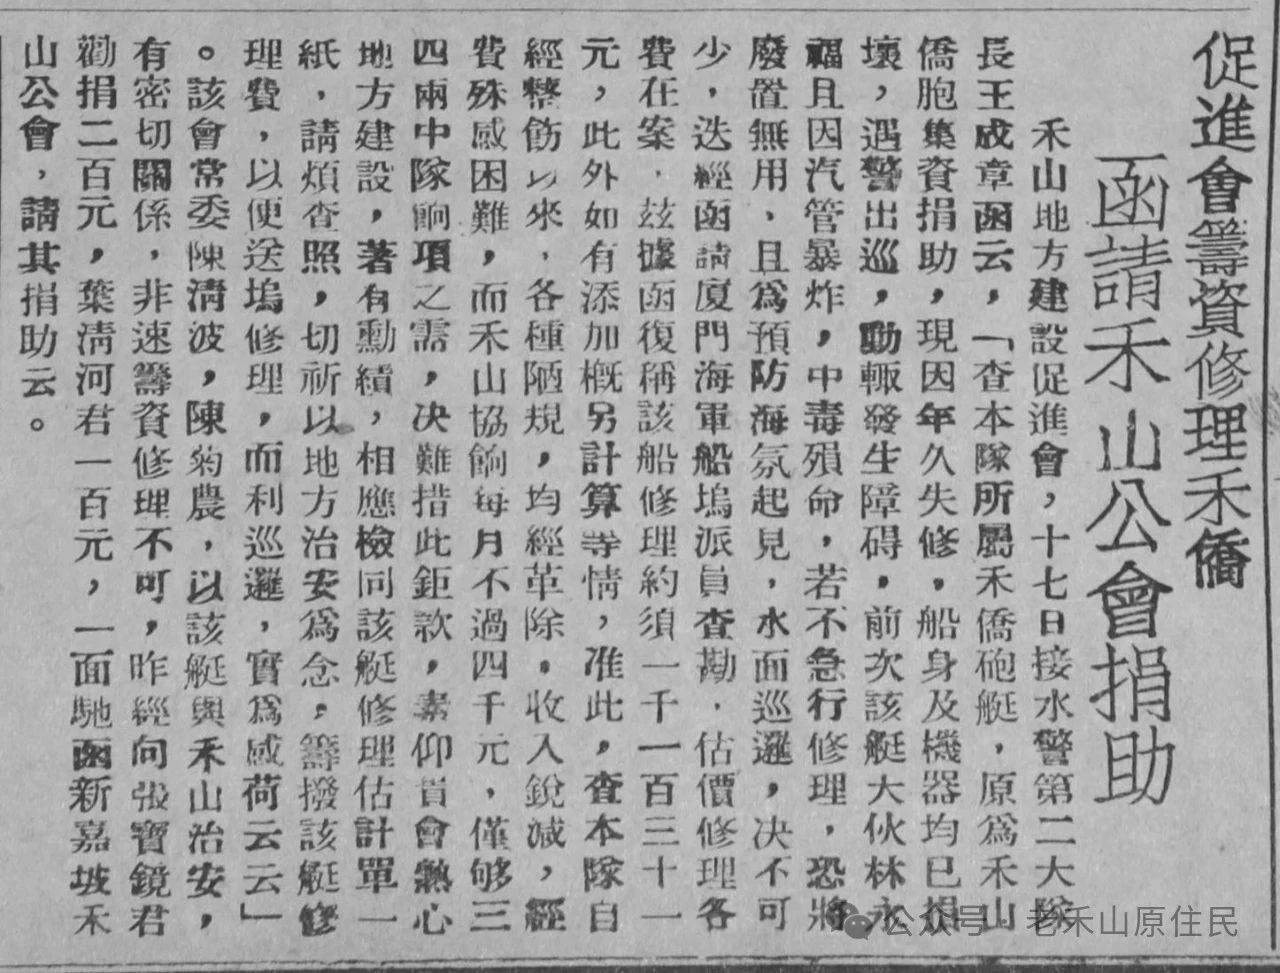 促進會籌資修理禾僑
函請禾山公會捐助
禾山地方建設促進會，十七日接水警第二大隊
長王成章函云，「查本隊所屬禾僑砲艇，原爲禾山
僑胞集資捐助，現因年久失修，船身及機器均已損
壞，遇警出巡，動輒發生障碍，前次該艇大伙林永
福且因汽管暴炸，中毒殞命，若不急行修理，恐將
廢置無用，且爲預防海氛起見，水面巡邏，决不可
少，迭經函請廈門海軍船塢派員查勘，估價修理各
費在案，茲據函復稱該船修理約須一千一百三十一
元，此外如有添加概另計算等情，准此，查本隊自
經整飭以來，各種陋規，均經革除，收入銳減，經
費殊感困難，而禾山協餉每月不過四千元，僅够三
四兩中隊餉項之需，决難措此鉅款，素仰貴會熱心
地方建設，著有勳績，相應檢同該艇修理估計單一
紙，請煩查照，切祈以地方治安爲念，籌撥該艇修
理費，以便送塢修理，而利巡邏，實爲感荷云云」
。該會常委陳淸波，陳菊農，以該艇與禾山治安，
有密切關係，非速籌資修理不可，昨經向張寶鏡君
勸捐二百元，葉淸河君一百元，一面馳函新嘉坡禾
山公會，請其捐助云。
公众号 · 老禾山原住民